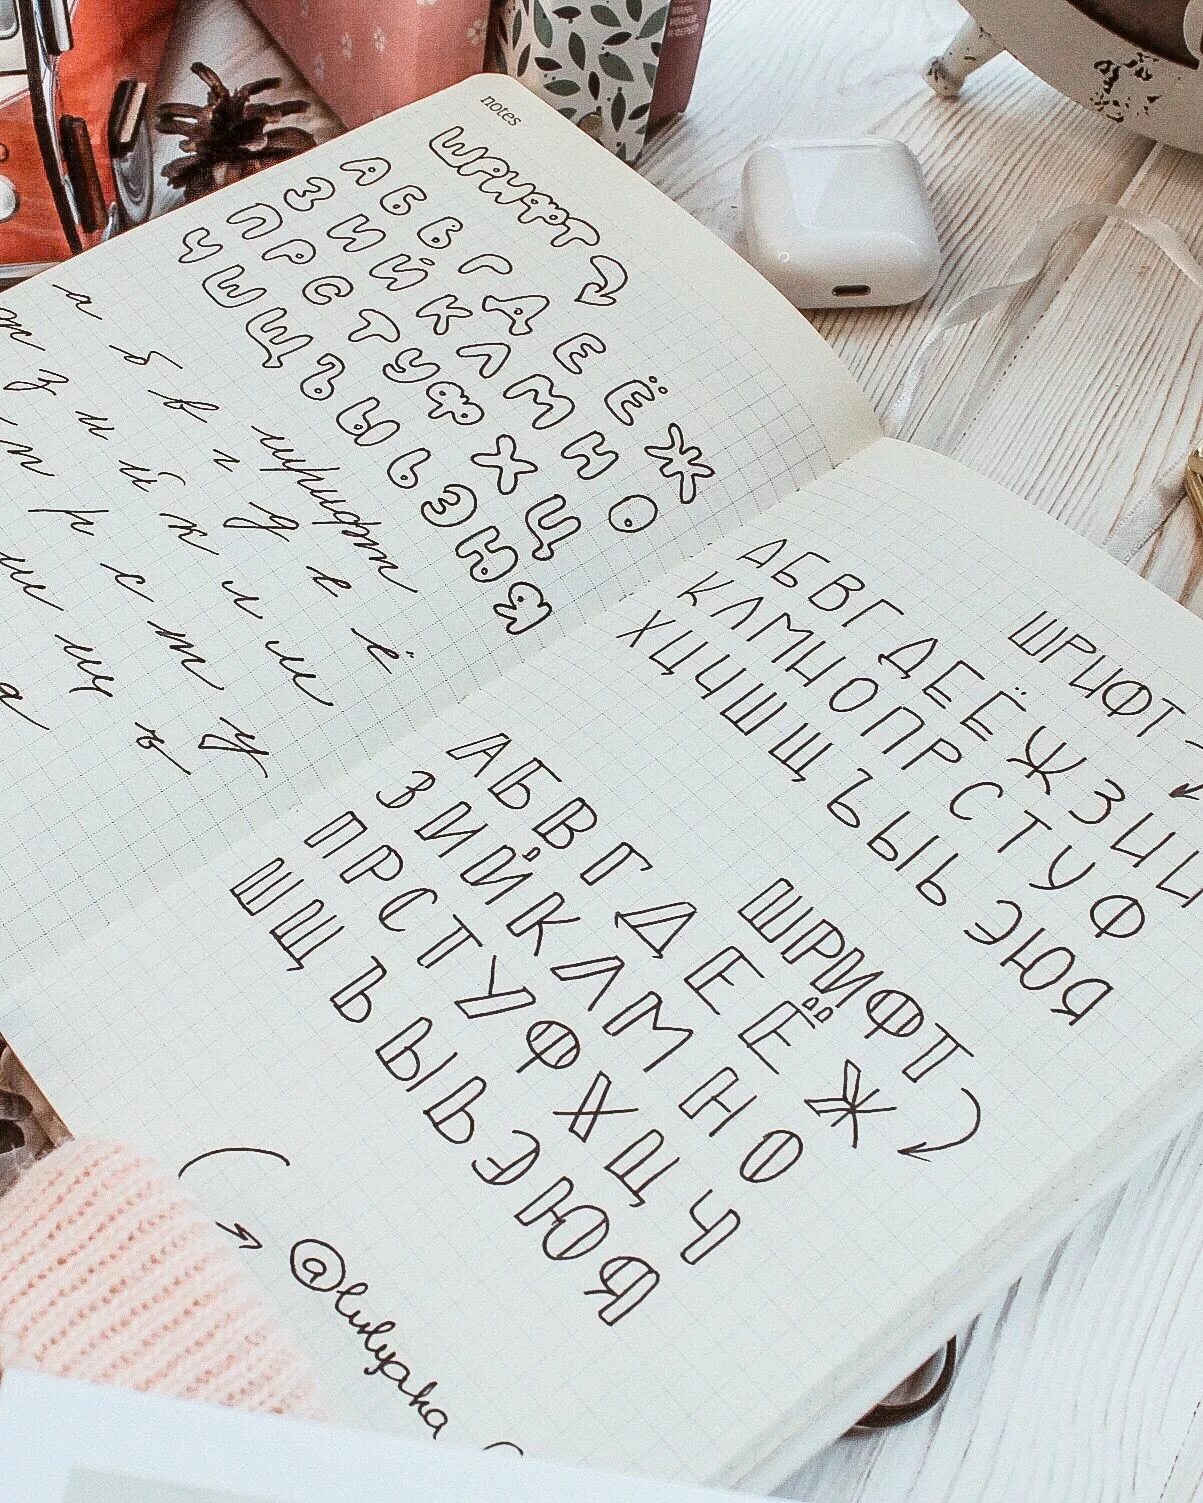 notes
ШРИФТ
А Б В Г Д Е Ё Ж
З И Й К Л М Н О
П Р С Т У Ф Х Ц
Ч Ш Щ Ъ Ы Ь Э Ю Я
шрифт
а б в г д е ё
ж з и й к л м
п р с т у
ш щ ъ
ШРИФТ
АБВГДЕЁЖЗИ
КЛМНОПРСТУФ
ХЦЧШЩЪЫЬЭЮЯ
ШРИФТ
АБВГДЕЁЖ
ЗИЙКЛМНО
ПРСТУФХЦЧ
ШЩЪЫЬЭЮЯ